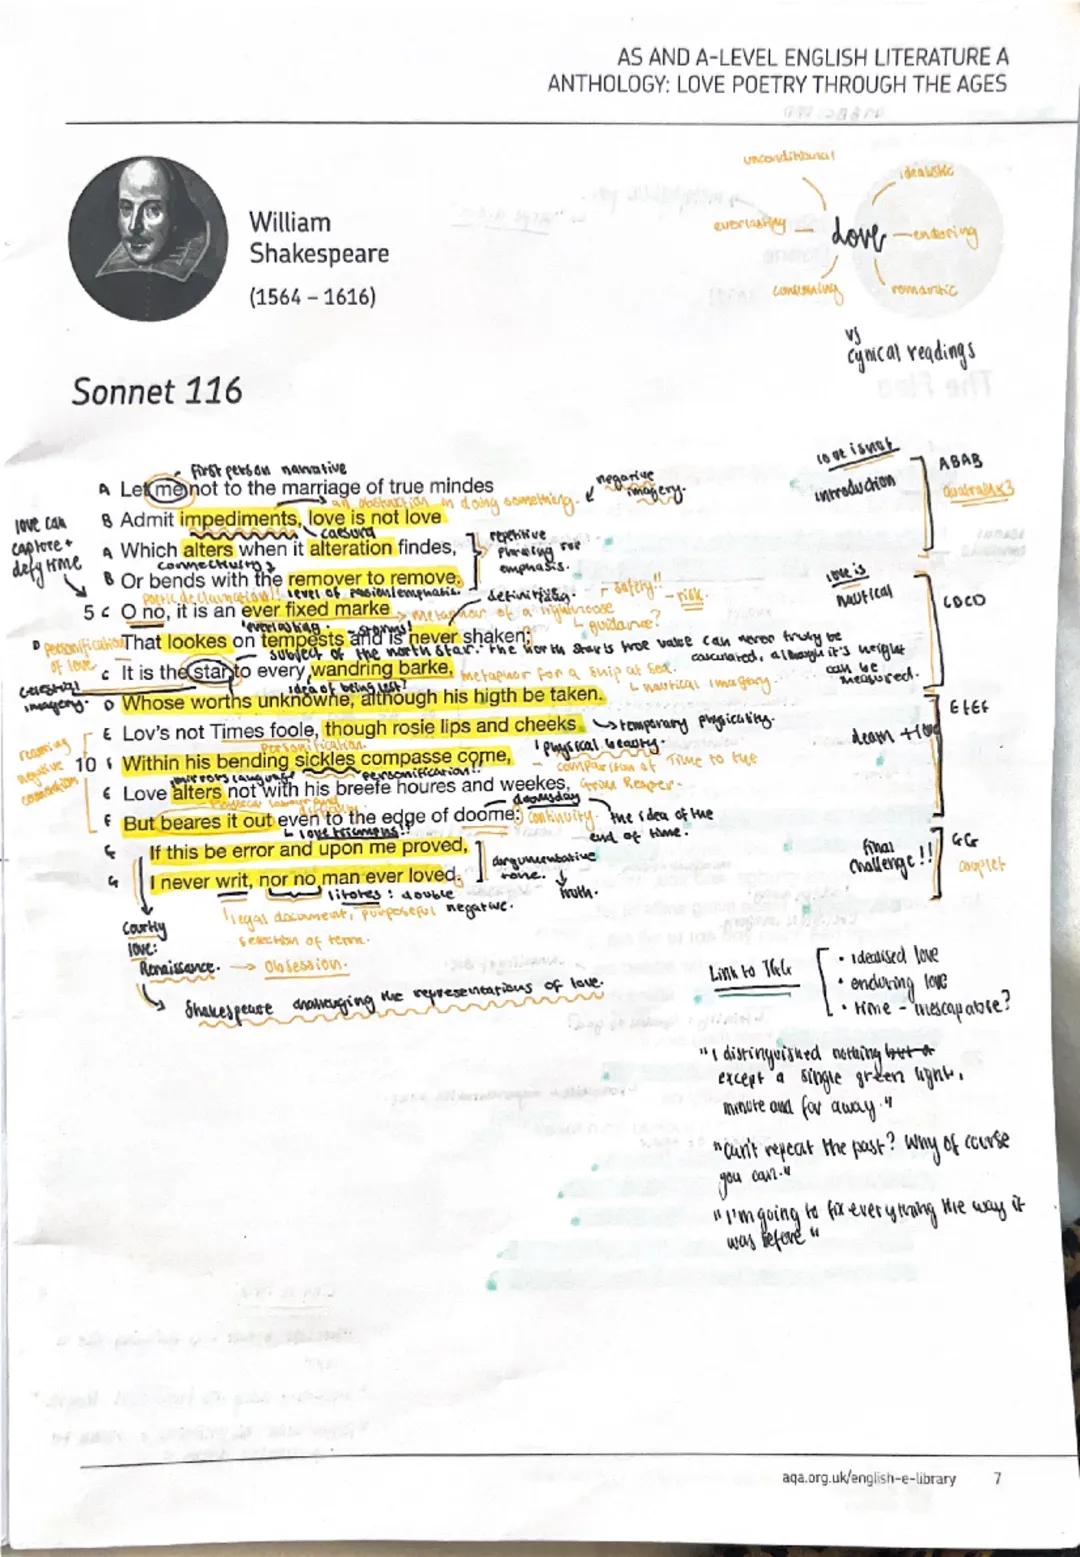 AS AND A-LEVEL ENGLISH LITERATURE A
ANTHOLOGY: LOVE POETRY THROUGH THE AGES
William
Shakespeare
(1564 – 1616)
unconditional
idealistic
everlasting
Love
enduring
consuming
romantic
vs
cynical readings
Sonnet 116
First person narrative
A Let me not to the marriage of true mindes
an obstruction in doing something.
negative
imagery.
B Admit impediments, love is not love
caesura
A Which alters when it alteration findes,
repetitive
phrasing for
emphasis.
B Or bends with the remover to remove.
level of passion/emphasis.
love can
capture +
defy time
5 C O no, it is an ever fixed marke
metaphor of a lighthouse
definitive
safety!!
risk.
guidance?
everlasting.
D That lookes on tempests and is never shaken;
personification
of love.
subject of the north star. the north star's true value can never truly be
calculated, although it's height
can be
measured.
C It is the star to every wandring barke,
metaphor for a ship at sea.
nautical imagery
celestial
imagery.
idea of being lost?
D Whose worths unknowne, although his higth be taken.
E Lov's not Times foole, though rosie lips and cheeks
temporary physicality.
personification.
physical beauty.
10 F Within his bending sickles compasse come,
comparison of Time to the
Grim Reaper.
mirrors language
personification!!
E Love alters not with his breefe houres and weekes,
doomsday
F But beares it out even to the edge of doome:
continuity.
the idea of the
end of time.
love triumphs!!
G If this be error and upon me proved,
argumentative
tone.
truth.
G I never writ, nor no man ever loved.
litotes: double
negative.
legal document, purposeful
selection of term.
love is not
introduction
ABAB
quatrain x3
love is
nautical
CDCD
death + love
EFEF
final
challenge!!
GG
couplet
Courtly
love:
Renaissance.
Obsession.
Shakespeare challenging the representations of love.
Link to TGG
• idealised love
• enduring love
• time - inescapable?
"I distinguished nothing
except a single green light,
minute and far away."
"can't repeat the past? Why of course
you can."
"I'm going to fix everything the way it
was before"
aqa.org.uk/english-e-library 7